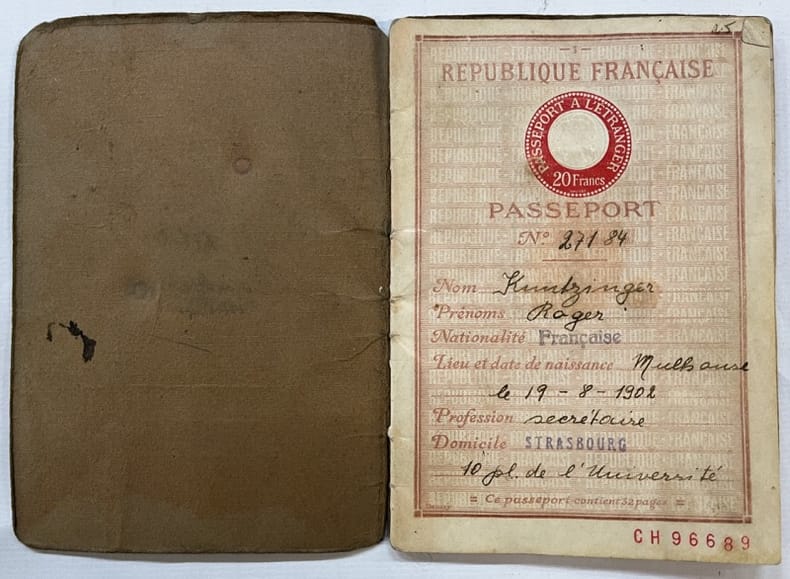 - 1 -
REPUBLIQUE FRANÇAISE
PASSEPORT A L'ETRANGER
20 Francs
PASSEPORT
No. 27184
Nom Kuntzinger
Prénoms Roger
Nationalité Française
Lieu et date de naissance Mulhouse
le 19 - 8 - 1902
Profession secrétaire
Domicile STRASBOURG
10 pl. de l'Université
= Ce passeport contient 32 pages =
CH 96689